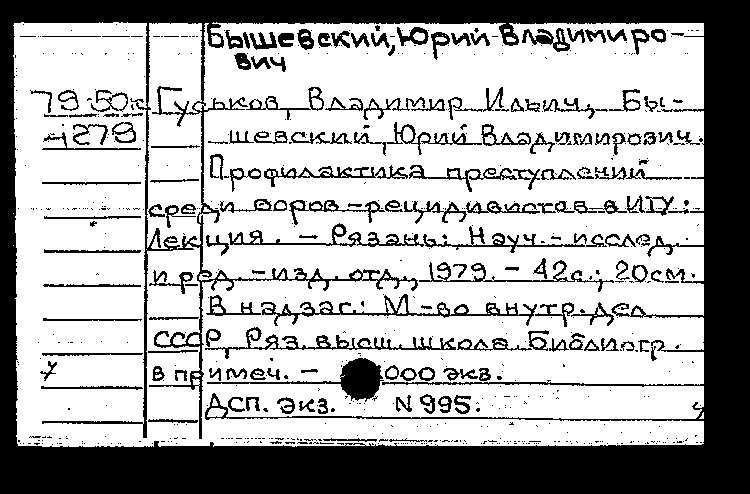 Бышевский, Юрий Владимиро-
вич
79-50к Гуськов, Владимир Ильич, Бы-
4279 шевский, Юрий Владимирович.
Профилактика преступлений
среди воров-рецидивистов в ИТУ:
Лекция. - Рязань: Науч.-исслед.
и ред.-изд. отд., 1979. - 42с.; 20см.
В надзаг.: М-во внутр. дел
СССР, Ряз. высш. школа. Библиогр.
в примеч. - 000 экз.
ДСП. Экз. N 995.